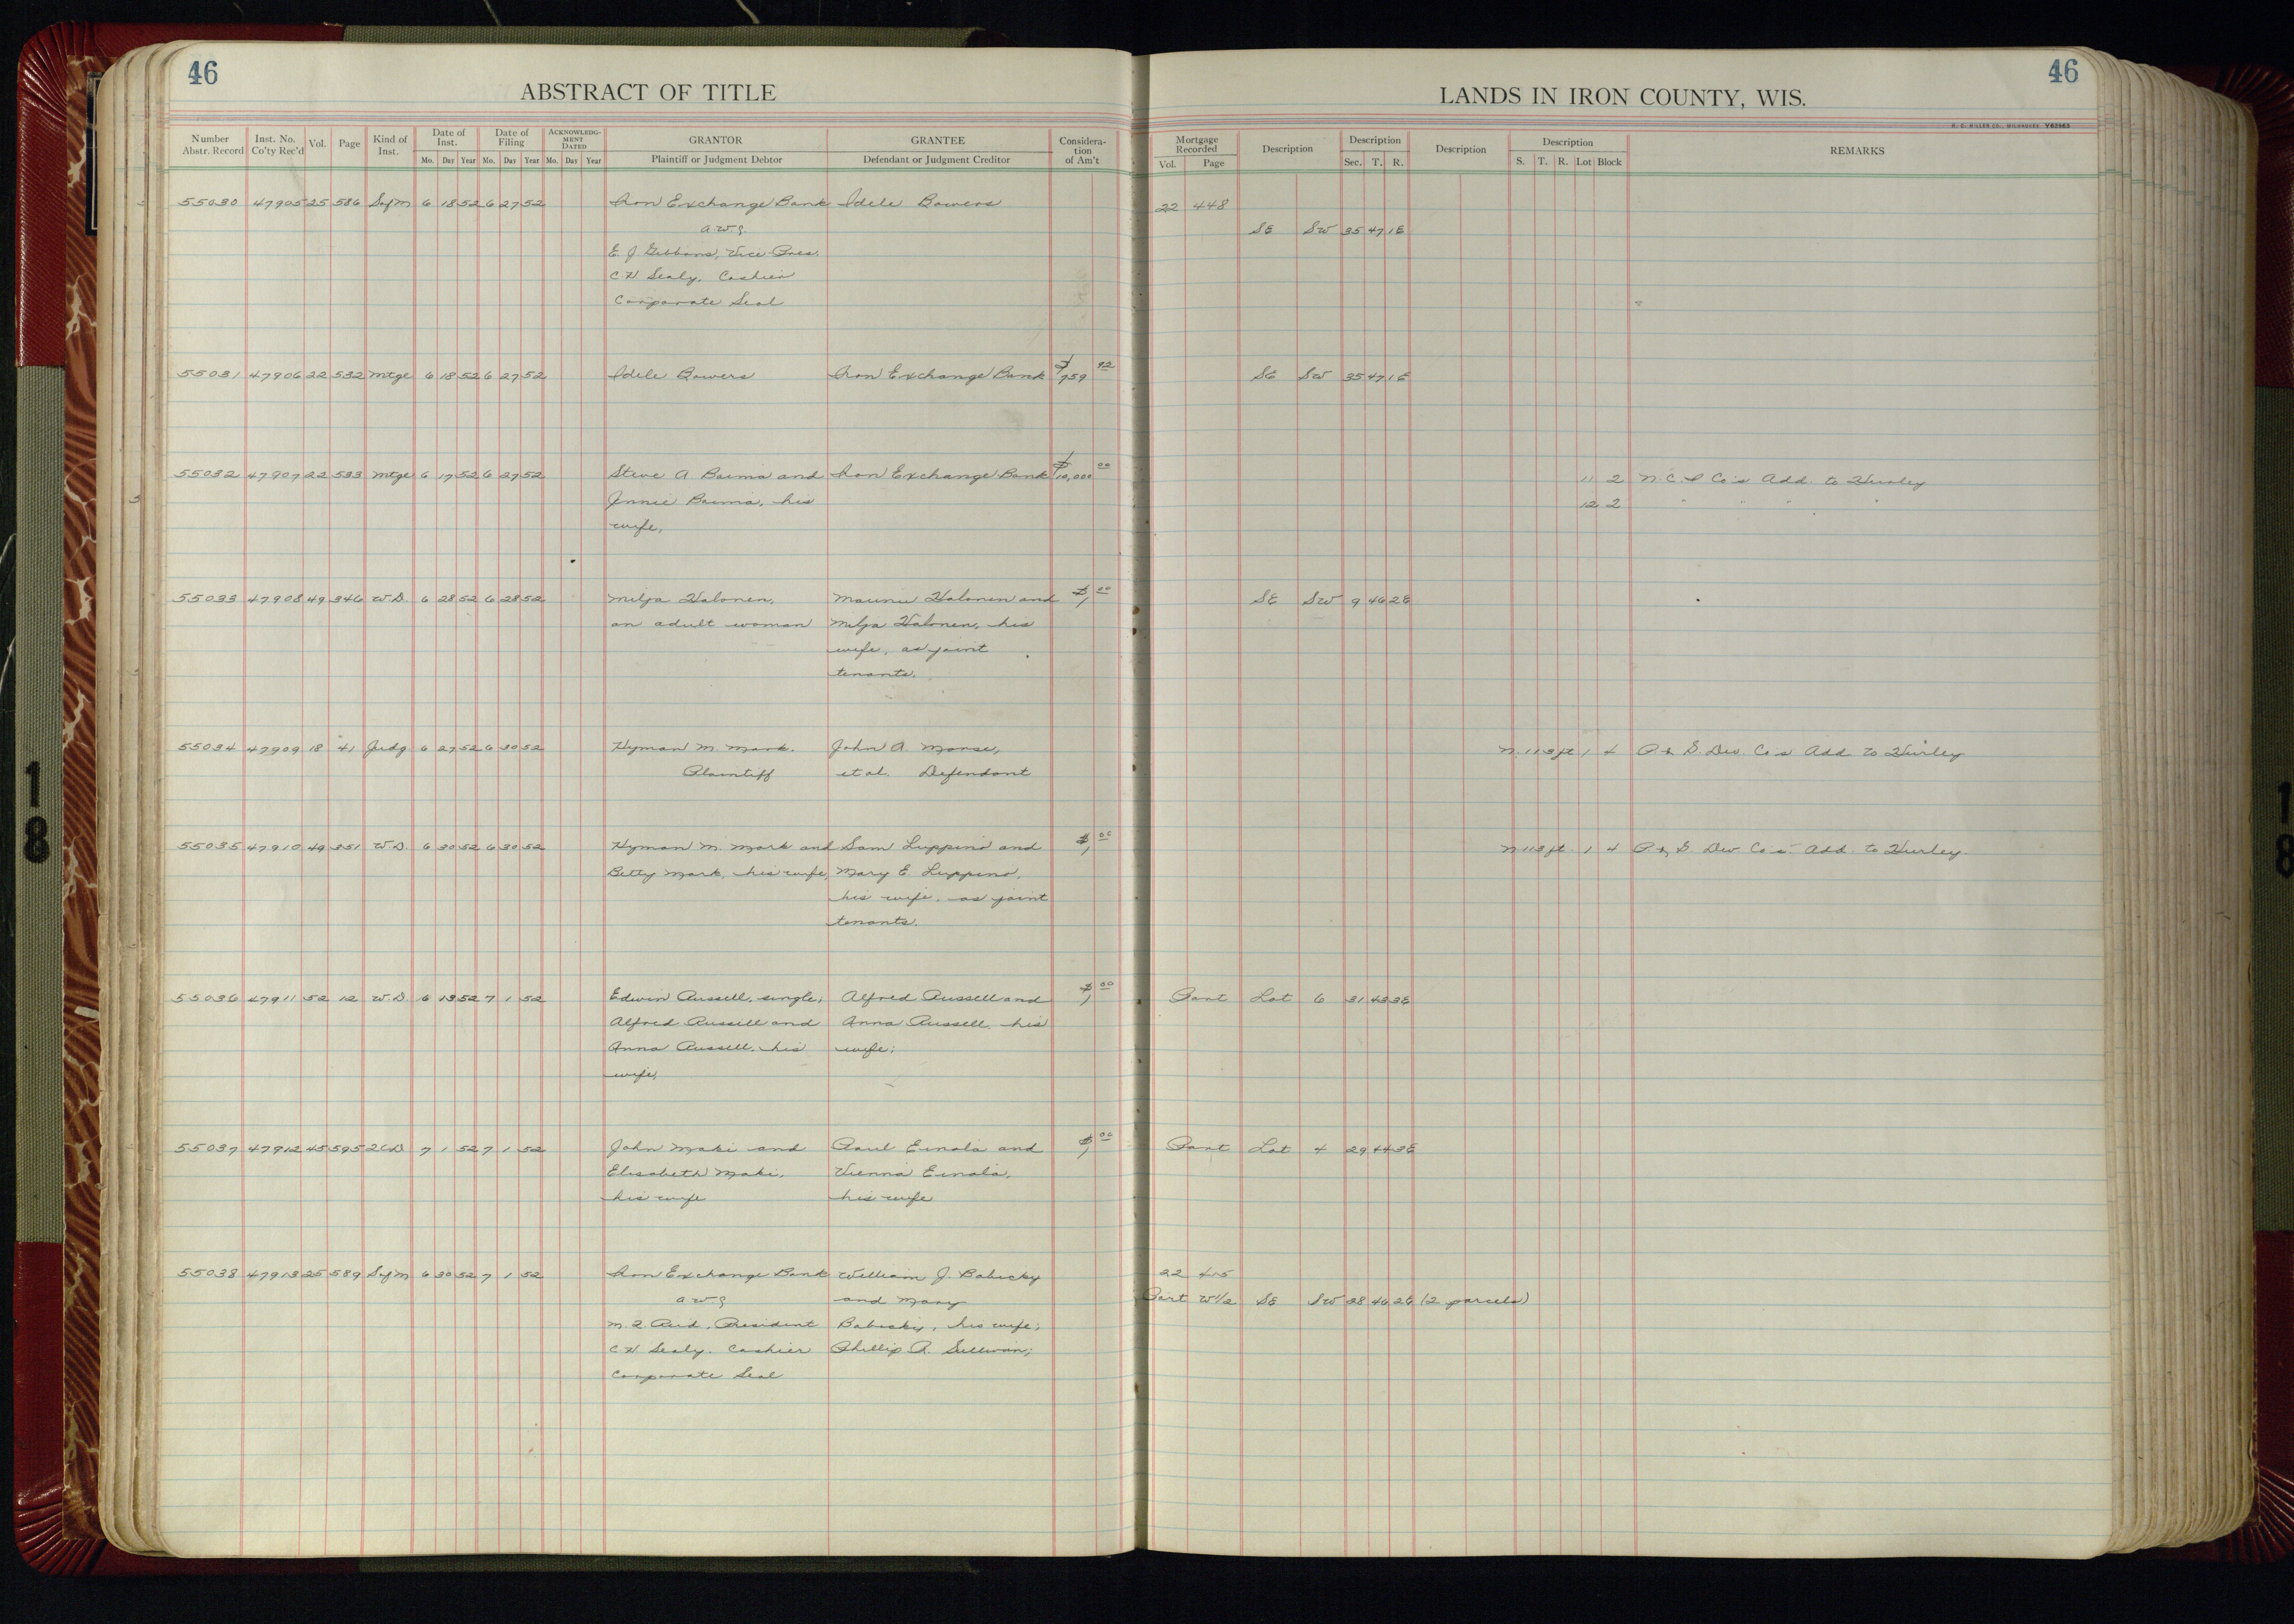 46
ABSTRACT OF TITLE
Number Abstr. Record Inst. No. Co'ty Rec'd Vol. Page Kind of Inst. Date of Inst. Date of Filing ACKNOWLEDGMENT DATED GRANTOR GRANTEE Consideration of Am't
Mo. Day Year Mo. Day Year Mo. Day Year Plaintiff or Judgment Debtor Defendant or Judgment Creditor
55030 47905 25 586 Sof M 6 18 52 6 27 52 Iron Exchange Bank Idele Bowers
E. J. Gibbons, Vice Pres.
C. H. Sealy, Cashier
Corporate Seal
55031 47906 22 532 Mtge 6 18 52 6 27 52 Idele Bowers Iron Exchange Bank $759 92
55032 47907 22 533 Mtge 6 17 52 6 27 52 Steve A Baima and Iron Exchange Bank $10,000 00
Jennie Baima, his
wife,
55033 47908 49 346 W.D. 6 28 52 6 28 52 Milja Halonen, Maunu Halonen and $1 00
an adult woman Milja Halonen, his
wife, as joint
tenants.
55034 47909 18 41 Judg. 6 27 52 6 30 52 Hyman M. Mark, John A. Morse,
Plaintiff et al. Defendant
55035 47910 49 351 W.D. 6 30 52 6 30 52 Hyman M. Mark and Sam Luppino and $1 00
Betty Mark, his wife, Mary E. Luppino,
his wife, as joint
tenants.
55036 47911 52 12 W.D. 6 13 52 7 1 52 Edwin Russell, single; Alfred Russell and $1 00
Alfred Russell and Anna Russell, his
Anna Russell, his wife;
wife,
55037 47912 45 595 2CD 7 1 52 7 1 52 John Maki and Paul Einola and $1 00
Elisabeth Maki, Vienna Einola,
his wife his wife
55038 47913 25 589 Sof M 6 30 52 7 1 52 Iron Exchange Bank William J. Babicky
and Mary
President Babicky, his wife;
C. H. Sealy, Cashier Phillip A. Sullivan;
Corporate Seal
46
LANDS IN IRON COUNTY, WIS.
H. C. MILLER CO., MILWAUKEE Y62963
Mortgage Recorded Description Description Description Description REMARKS
Vol. Page Sec. T. R. S. T. R. Lot Block
22 448
SE SW 35 47 1E
SE SW 35 47 1E
11 2 N.C.I Co's Add. to Hurley
12 2 " " " "
SE SW 9 46 2E
N. 113 ft 1 4 P. & S. Dev. Co's Add to Hurley
N 113 ft. 1 4 P. & S Dev Co's Add to Hurley
Part Lot 6 31 43 3E
Part Lot 4 29 44 3E
22 415
Part W1/2 SE SW 28 46 2E (2 parcels)
18
18